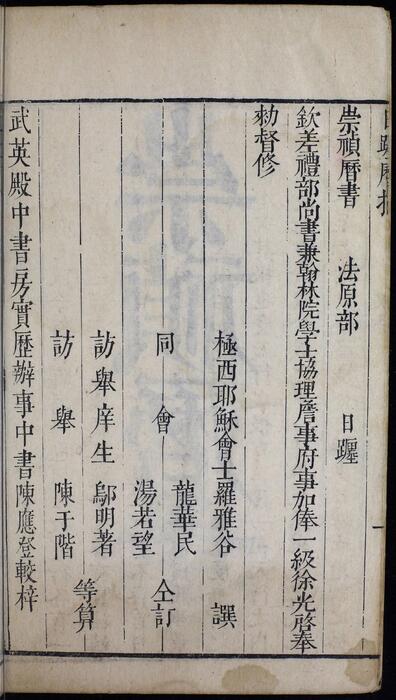 日躔曆指
崇禎曆書　法原部　日躔
欽差禮部尚書兼翰林院學士協理詹事府事加俸一級徐光啓奉
勑督修
極西耶穌會士羅雅谷　譔
龍華民
同會　仝訂
湯若望
訪舉庠生　鄔明著
訪舉　陳于階　等算
武英殿中書房實歷辦事中書陳應登較梓
一